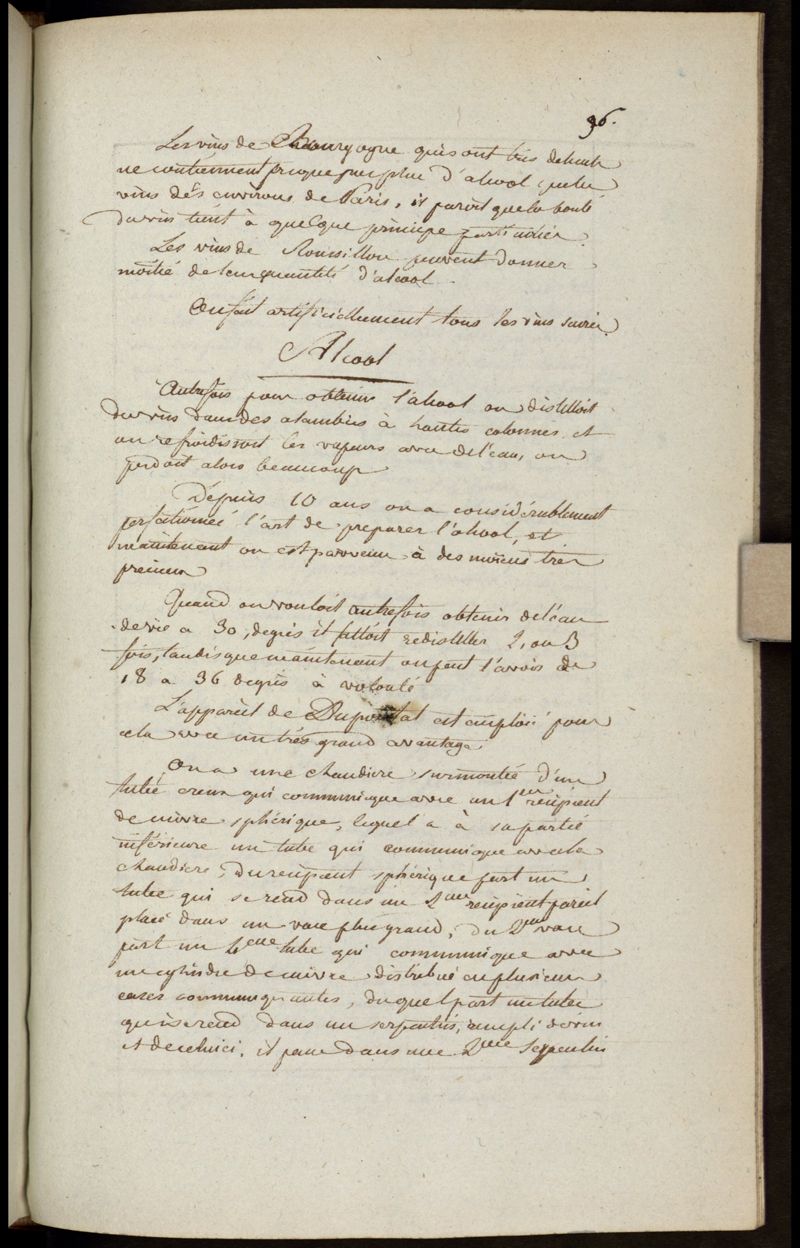 96.
Les vins de Bourgogne qui sont très delicats
ne contiennent presque pas plus d'alcool que les
vins des environs de Paris, il paroit que la bonté
du vin tient à quelque principe particulier.
Les vins de Roussillon peuvent donner
moitié de leur quantité d'alcool.
On fait artificiellement tous les vins sucrés.
Alcool
Autrefois pour obtenir l'alcool on distilloit
du vin dans des alambics à hautes colonnes et
on refroidissoit les vapeurs avec de l'eau, on
perdoit alors beaucoup
Depuis 10 ans on a considérablement
perfectionné l'art de préparer l'alcool, et
maintenant on est parvenu à des moiens très
precieux
Quand on vouloit autrefois obtenir de l'eau
de vie a 30 degrés il falloit redistiller 2 ou 3
fois, tandis que maintenant on peut l'avoir de
18 a 36 degrés à volonté
L'appareil de Duportal est emploié pour
cela avec un très grand avantage.
On a une chaudiere surmontée d'un
tube creux qui communique avec un 1er recipient
de cuivre sphérique, lequel a à sa partie
inférieure un tube qui communique avec la
chaudiere, du recipient sphérique part un
tube qui se rend dans un 2me recipient pareil
placé dans un vase plus grand, du 2me vase
part un tube qui communique avec
un cylindre de cuivre distribué en plusieurs
cases communiquantes, duquel part un tube
qui se rend dans un serpentin, rempli de vin
et de celui ci, il passe dans une 2me serpentin